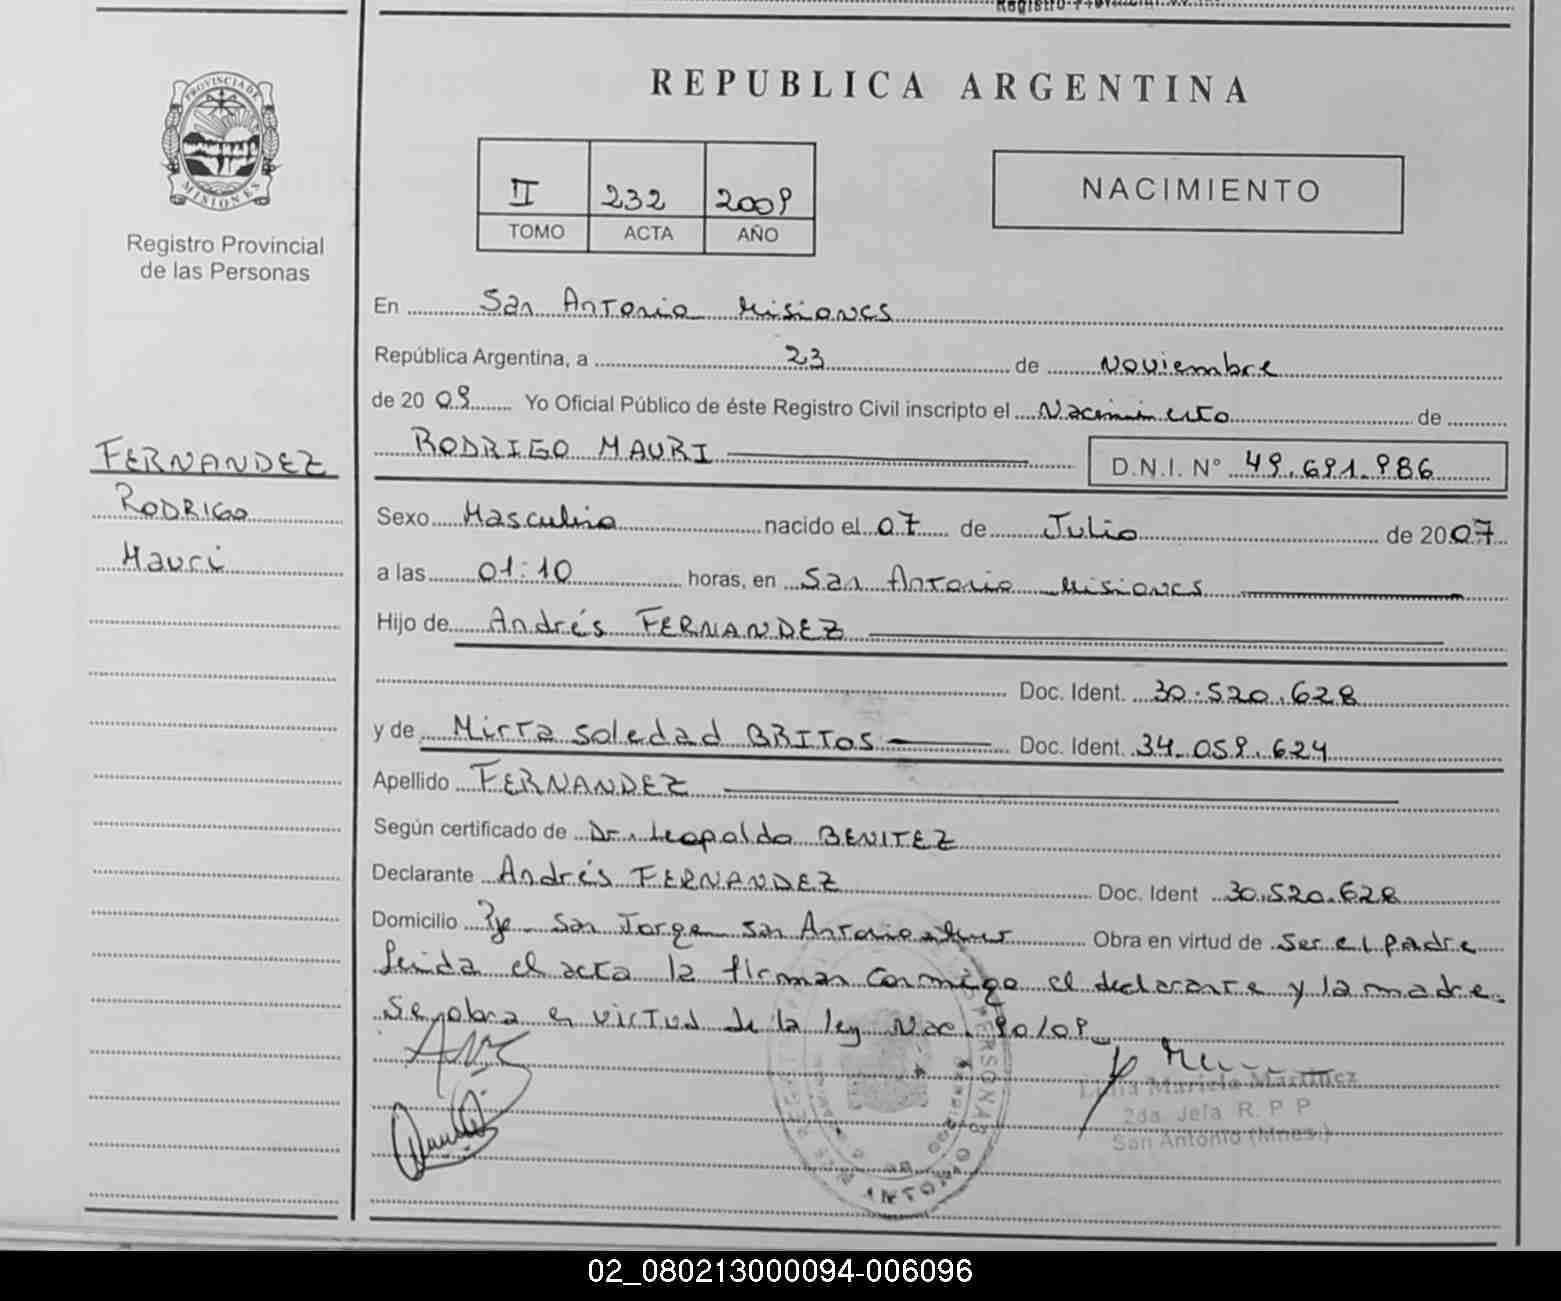 REPUBLICA ARGENTINA
PROVINCIA DE
MISIONES
Registro Provincial
de las Personas
II 232 2009
TOMO ACTA AÑO
NACIMIENTO
En San Antonio Misiones
República Argentina, a 23 de Noviembre
de 20 09 Yo Oficial Público de éste Registro Civil inscripto el Nacimiento de
RODRIGO MAURI D.N.I. N° 49.691.986
FERNANDEZ
RODRIGO
Mauri
Sexo Masculino nacido el 07 de Julio de 2007
a las 01:10 horas, en San Antonio Misiones
Hijo de Andrés FERNANDEZ
Doc. Ident. 30.520.628
y de Mirta Soledad BRITOS Doc. Ident. 34.059.624
Apellido FERNANDEZ
Según certificado de Dr. Leopoldo BENITEZ
Declarante Andrés FERNANDEZ Doc. Ident 30.520.628
Domicilio Pje San Jorge San Antonio Obra en virtud de Ser el padre
Leida el acta la firman conmigo el declarante y la madre.
Se obra en virtud de la ley Nac. 90/09
Mariela Martinez
2da. Jefa R. P P
San Antonio (Mnes.)
02_080213000094-006096